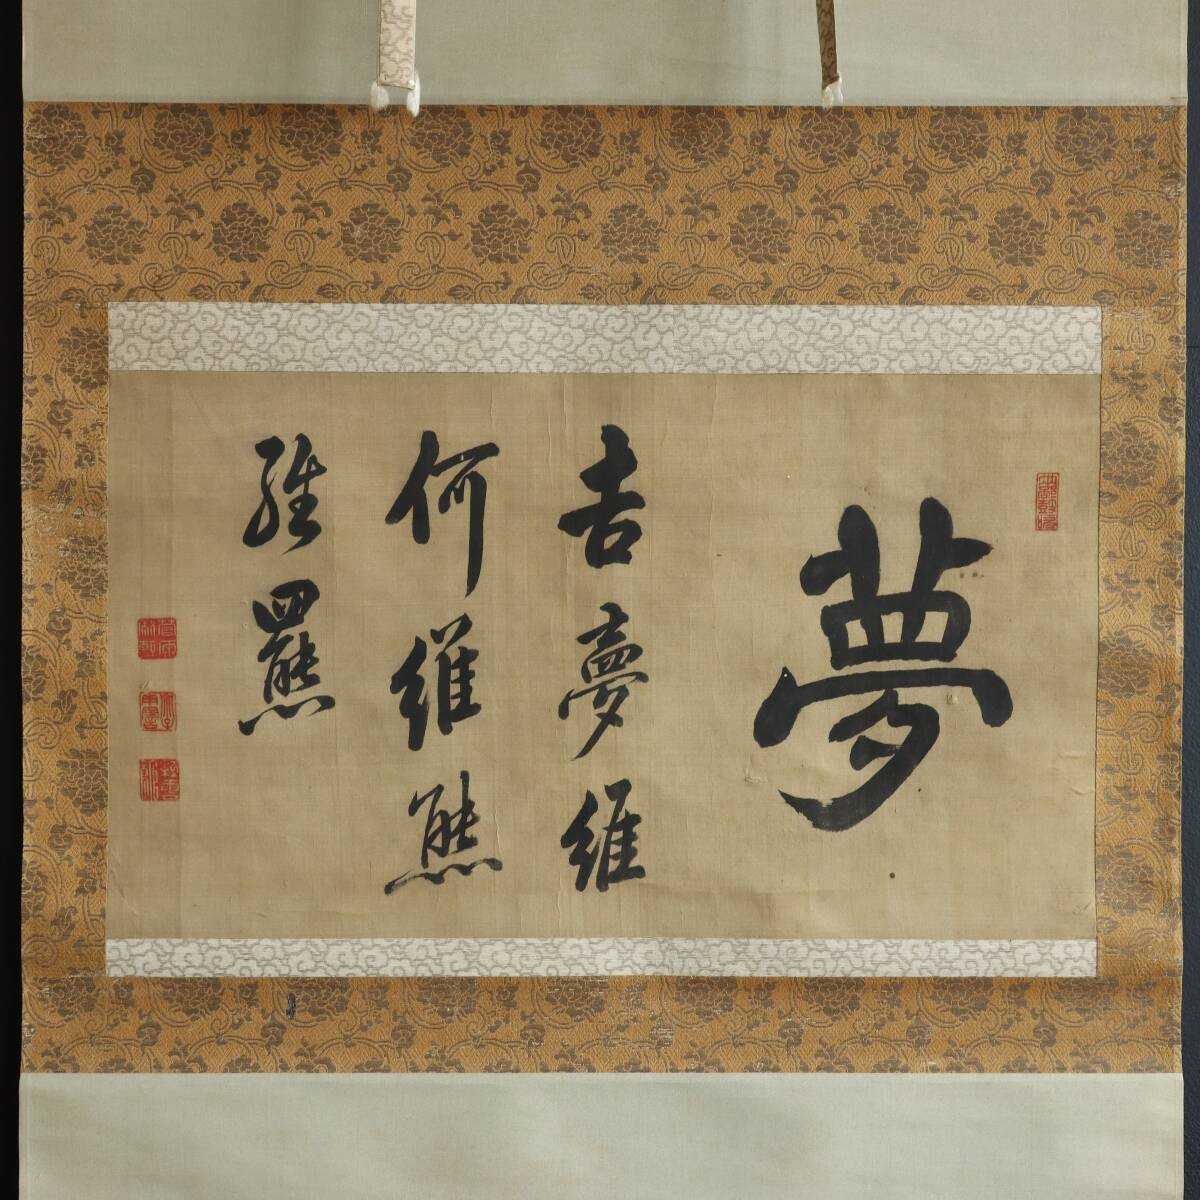 夢
吉夢維
何維熊
維羆